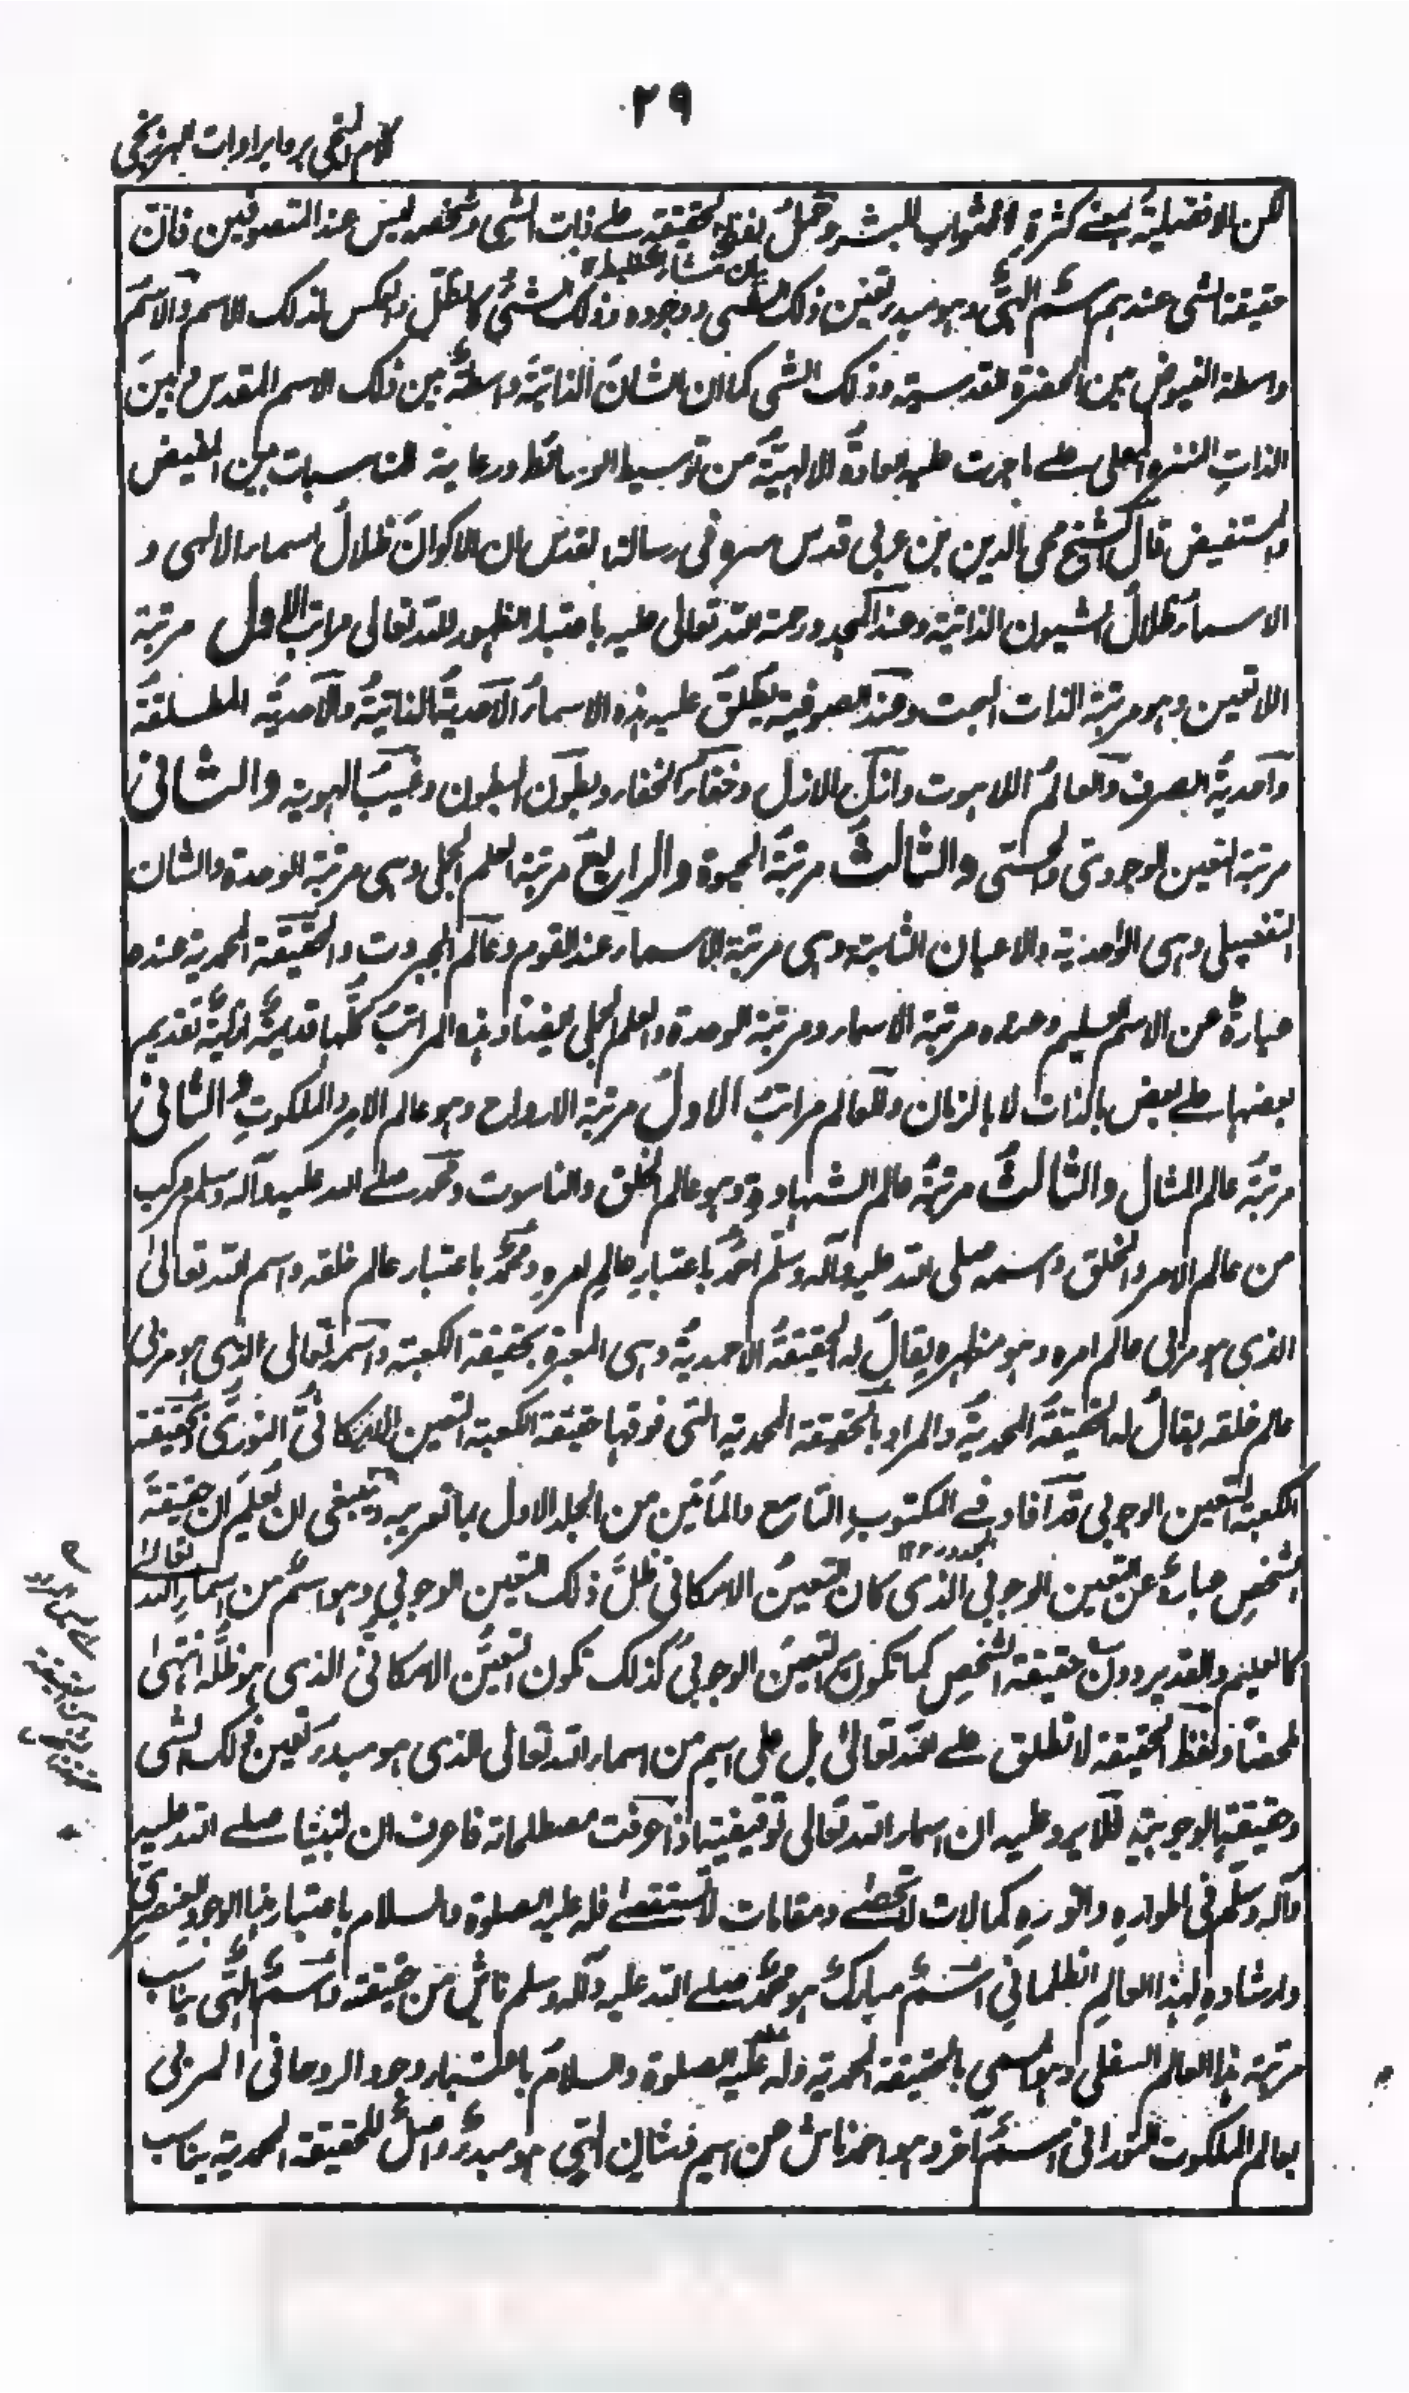 ٢٩
كلام المنجى برد ايرادات البرزنجى
لكن الافضلية بمعنے كثرة الثواب للبشر وحمل لفظ الحقيقة علے ذات الشى وشخصه ليس عند المتصوفين فان
بيان منشاء غلطه
حقيقة الشى عندهم اسم الهى وهو مبدء تعين ذلك الشى ووجوده وذلك الشئ كالظل والعكس لذلك الاسم والاسم
واسطة الفيوض بين الحضرة القدسية وذلك الشى كما ان الشان الذاتية واسطة بين ذلك الاسم المقدس وبين
الذات المنزه المعلى علے ما جرت عليه العادة الالهية من توسيط الوسائط ورعاية المناسبات بين المفيض
والمستفيض قال الشيخ محى الدين بن عربى قدس سره فى رسالة القدس ان الاكوان ظلال اسماء الالهى و
الاسماء ظلال الشيون الذاتية وعند المجدد رحمة الله تعالى عليه باعتبار الظهور لله تعالى مراتب الاول مرتبة
اللا تعين وهو مرتبة الذات البحت وعند الصوفية يطلق عليه هذه الاسماء الاحدية الذاتية والاحدية المطلقة
واحدية الصرف والعالم اللاهوت وازل الازل وخفاء الخفاء وبطون البطون وغيب الهوية والثانى
مرتبة التعين الوجودى والحبى والثالث مرتبة الحيوة والرابع مرتبة العلم الجملى وهى مرتبة الوحدة والشان
التفصيلى وهى الواحدية والاعيان الثابتة وهى مرتبة الاسماء عند القوم وعالم الجبروت والحقيقة المحمدية عنده
عبارة عن الاسم العليم وعنده مرتبة الاسماء ومرتبة الوحدة والعلم الجملى ايضا وهذه المراتب كلها قديمة ازلية تقديم
بعضها علے بعض بالذات لا بالزمان وللعالم مراتب الاول مرتبة الارواح وهو عالم الامر والملكوت والثانى
مرتبة عالم المثال والثالث مرتبة عالم الشهادة وهو عالم الخلق والناسوت ومحمد صلے الله عليه وآله وسلم مركب
من عالم الامر والخلق واسمه صلى الله عليه وآله وسلم احمد باعتبار عالم امره ومحمد باعتبار عالم خلقه واسم الله تعالىٰ
الذى هو مربى عالم امره وهو مظهره يقال له الحقيقة الاحمدية وهى المعبرة بحقيقة الكعبة واسمه تعالى الذى هو مربى
عالم خلقه يقال له الحقيقة المحمدية والمراد بالحقيقة المحمدية التى فوقها حقيقة الكعبة التعين الامكانى النورى وحقيقة
الكعبة التعين الوجوبى قد افاد فے المكتوب التاسع والمأتين من الجلد الاول بما تعريبه وينبغى ان تعلم ان حقيقة
المجدد رح
الشخص عبارة عن التعين الوجوبى الذى كان التعين الامكانى ظل ذلك التعين الوجوبى وهو اسم من اسماء الله تعالىٰ
كالعليم والقدير حقيقة الشخص كما تكون التعين الوجوبى كذلك تكون التعين الامكانى الذى هو ظله انتهىٰ
ملخصا ولفظ الحقيقة لا تطلق علے الله تعالىٰ بل على اسم من اسماء الله تعالى الذى هو مبدء تعين ذلك الشى
وحقيقتها الوجوبية فلا يرد عليه ان اسماء الله تعالى توقيفية اذا عرفت مصطلحاته فاعرف ان لنبينا صلے الله عليه
وآله وسلم فى اطواره وانوره كمالات لا تحصىٰ ومقامات لا تستقصىٰ فله عليه الصلوة والسلام باعتبار هذا الوجود العنصرى
وارشاده لهذا العالم الظلمانى اسم مبارك هو محمد صلے الله عليه وآله وسلم ناش من حقيقة واسم الهى يناسب
مرتبة هذا العالم السفلى وهو المسمى بالحقيقة المحمدية وله عليه الصلوة والسلام باعتبار وجود الروحانى المربى
بعالم الملكوت النورانى اسم آخر وهو احمد ناش من اسم فشان الٰهى هو مبدء واصل للحقيقة المحمدية يناسب